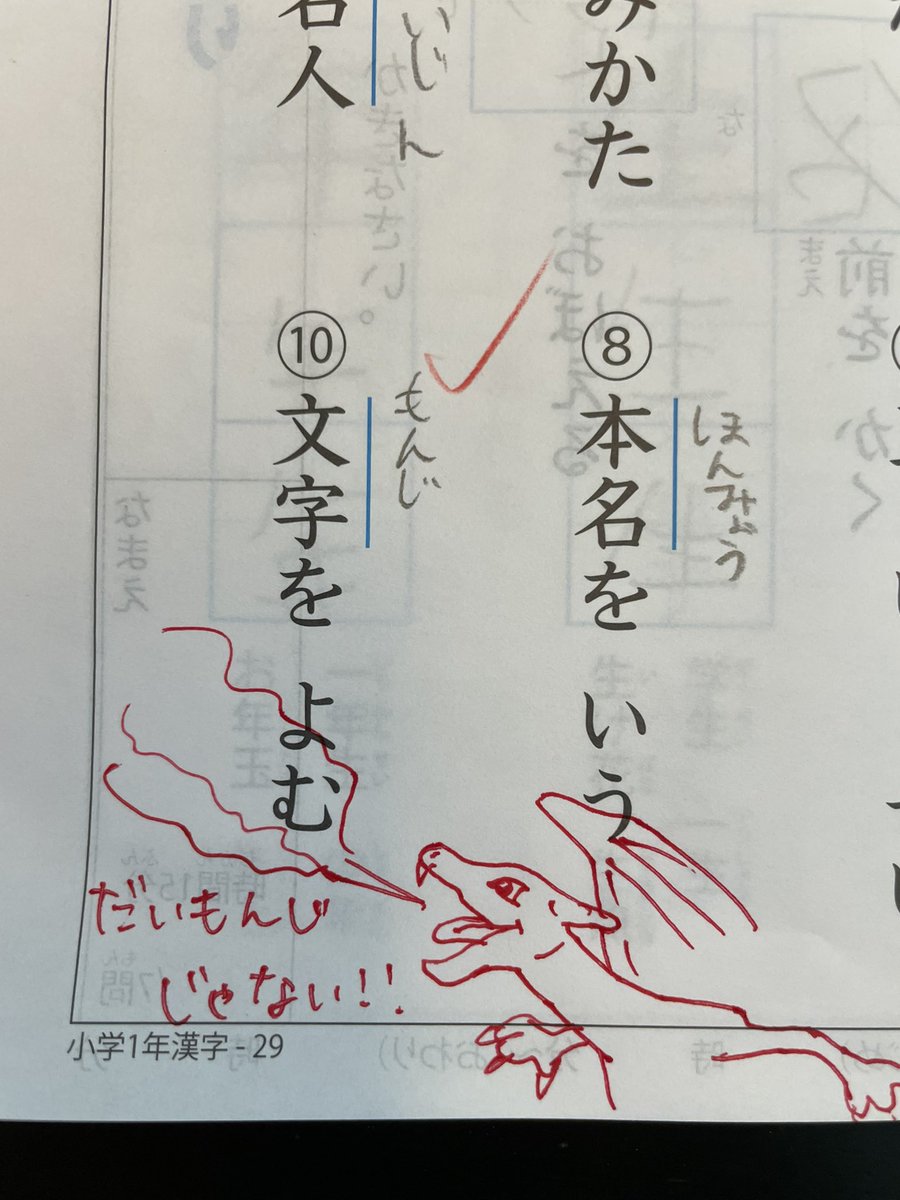 みかた
⑧本名を いう
ほんみょう
名人
いじん
⑩文字を よむ
もんじ
だいもんじ
じゃない!!
小学1年漢字 - 29